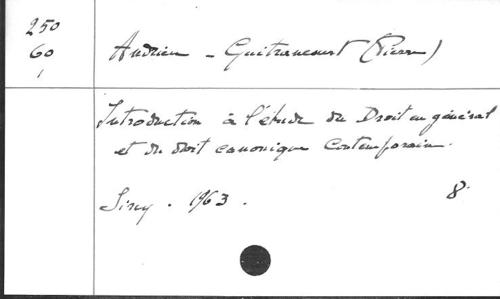 250
60
1
Andrieu - Guitrancourt (Pierre)
Introduction à l'étude du Droit en général
et du droit canonique contemporain.
Sirey. 1963.
8°